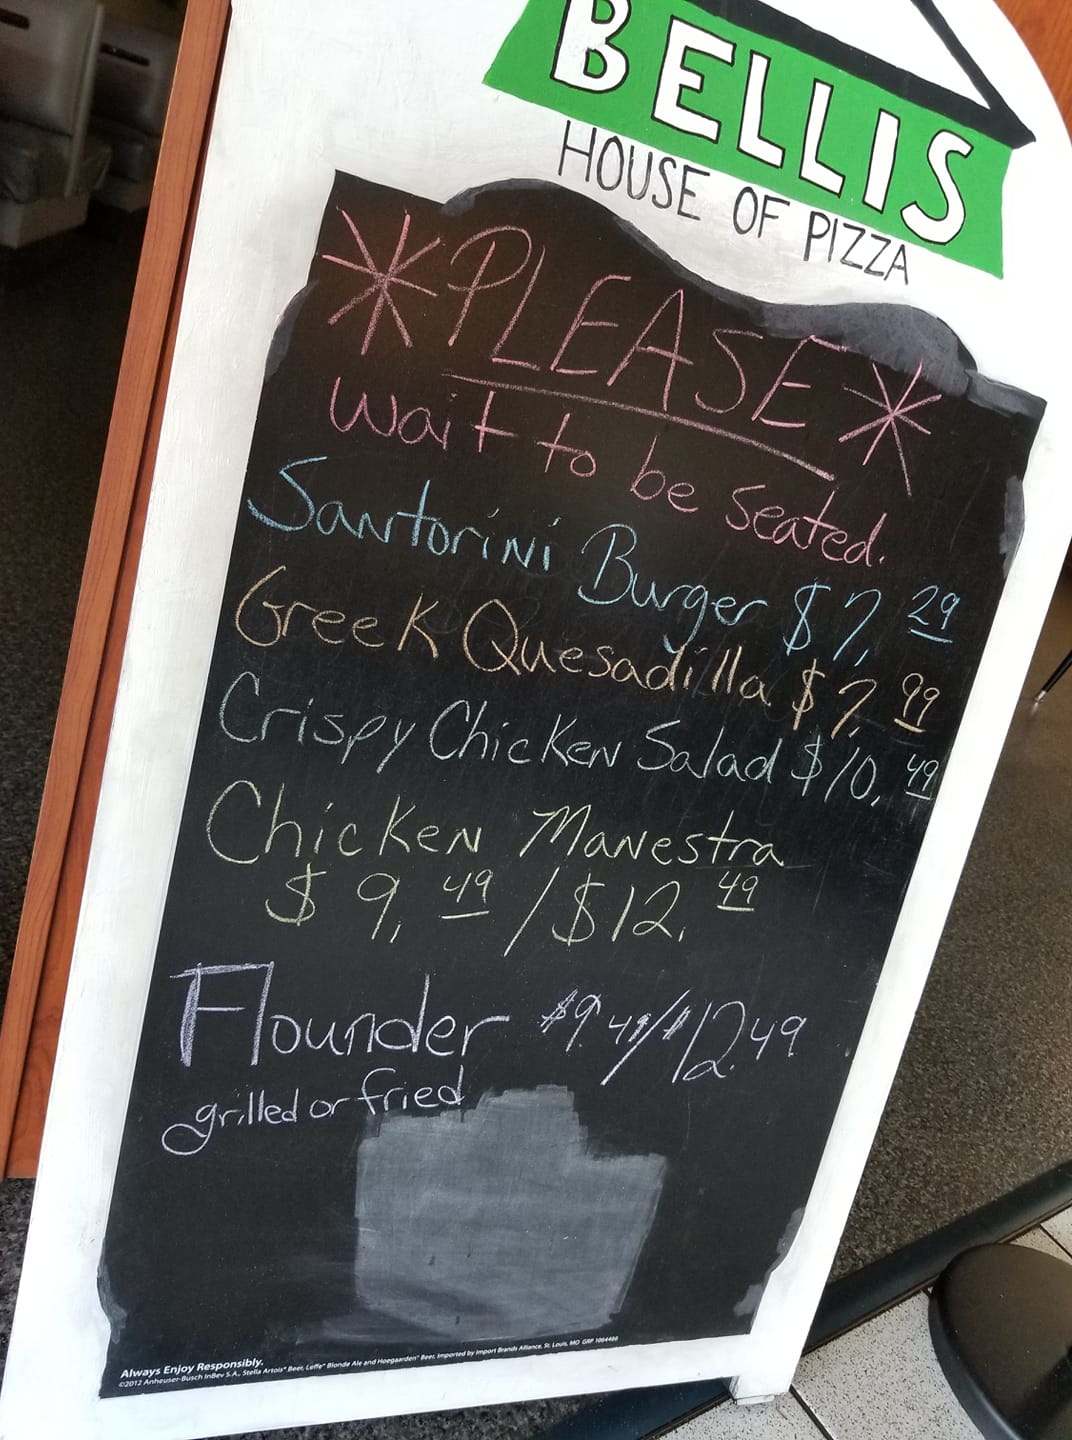 BELLIS
HOUSE OF PIZZA
*PLEASE*
wait to be seated.
Santorini Burger $7.29
Greek Quesadilla $7.99
Crispy Chicken Salad $10.49
Chicken Manestra
$9.49 / $12.49
Flounder $9.49/$12.49
grilled or fried
Always Enjoy Responsibly.
©2012 Anheuser-Busch InBev S.A., Stella Artois® Beer, Leffe® Blonde Ale and Hoegaarden® Beer, Imported by Import Brands Alliance, St. Louis, MO GRP 1064466